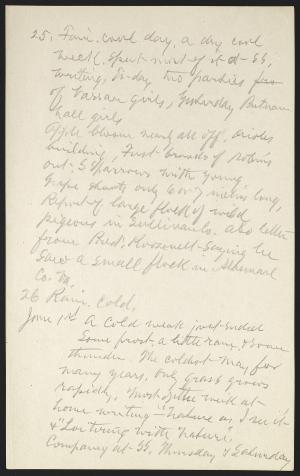 25. Fair, cool day, a dry cool
week. Spent most of it at SS,
writing, to-day two parties from
of Vassar girls, Yesterday Putnam
hall girls
Apple bloom nearly all off, orioles
building, First brood of robins
out. Sparrows with young,
Grape shoots only 6 or 7 inches long,
Report of large flock of wild
pigeons in Sullivan Co. also letter
from Pres. Roosevelt saying he
saw a small flock in Albemarl
Co. Va.
26 Rain, cold,
June 1st A cold week just ended
Some frost, a little rain, & some
thunder. The coldest May for
many years, only grass grows
rapidly, Most of the week at
home writing "Nature as I see it"
& "Loitering with nature",
Company at SS. Thursday & Saturday